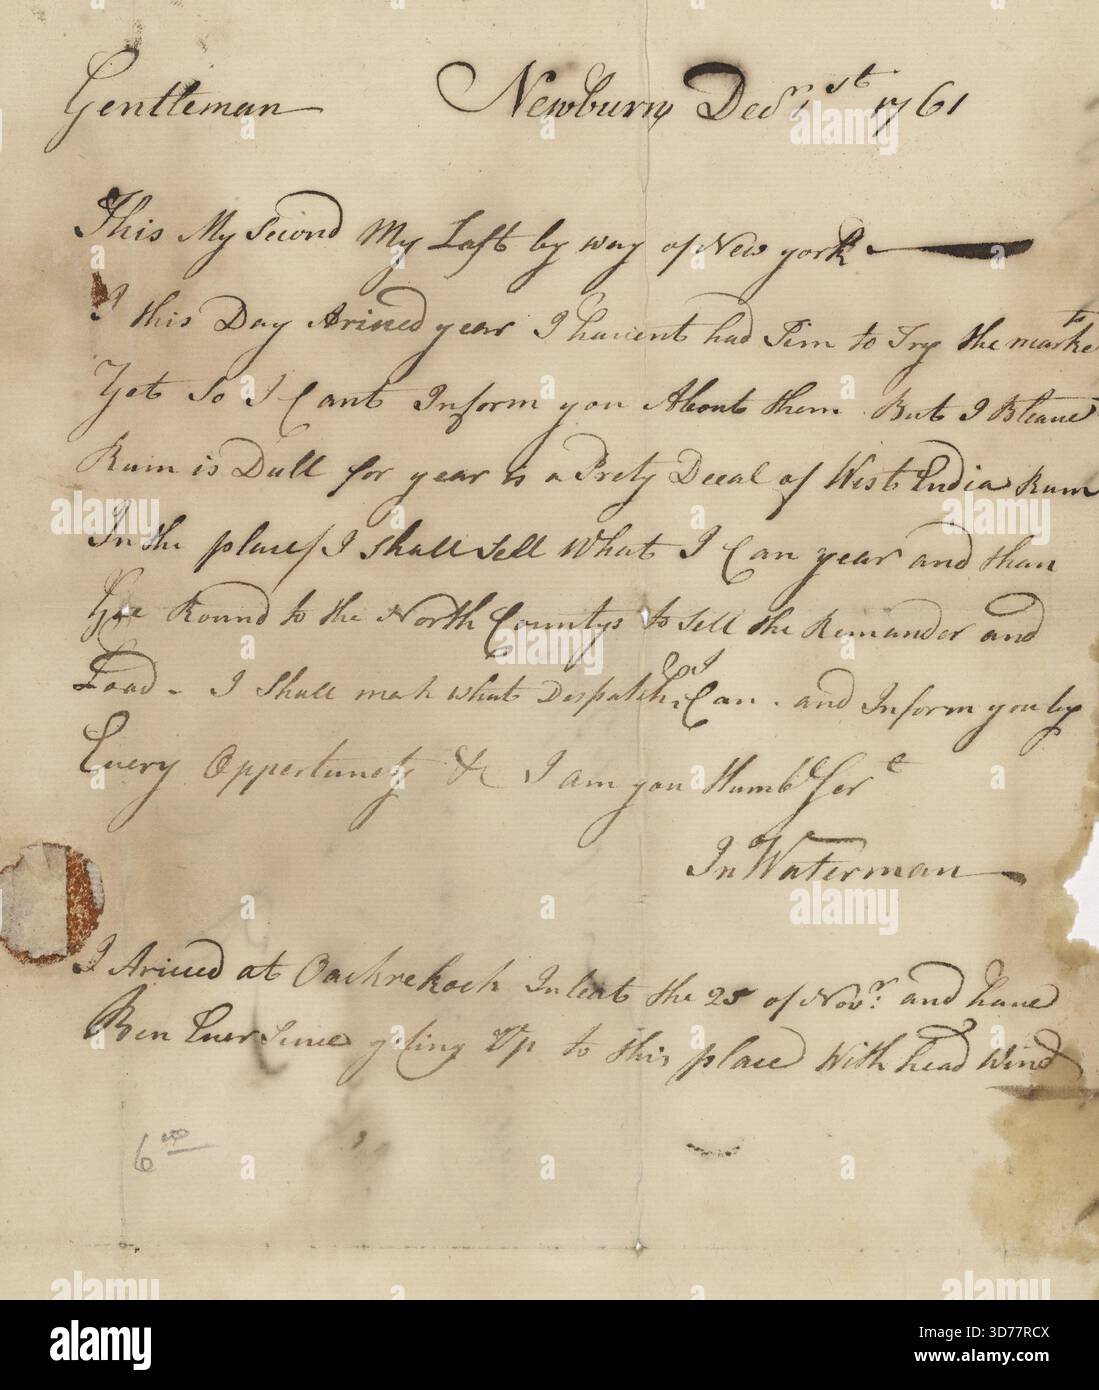 Gentleman Newburn Decr 1st 1761
This My Second My Last by way of New york
I this Day Arived year I havent had Tim to Try the marke
to
Yet So I Cant Inform you About them But I Bleave
Rum is Dull for year is a Prety Deeal of West India Rum
In the place I shall Sell What I Can year and than
Goe Round to the North Countys to Sell the Remander and
Load - I Shall mak what Despatch I Can and Inform you by
Every Oppertunety &c I am you Humble Serte
Jn Waterman
I Arived at Oackrekock Inleat the 25 of Novr and have
Ben Ever Since geting Up to this place With head Wind
6
alamy
Image ID: 3D77RCX
www.alamy.com